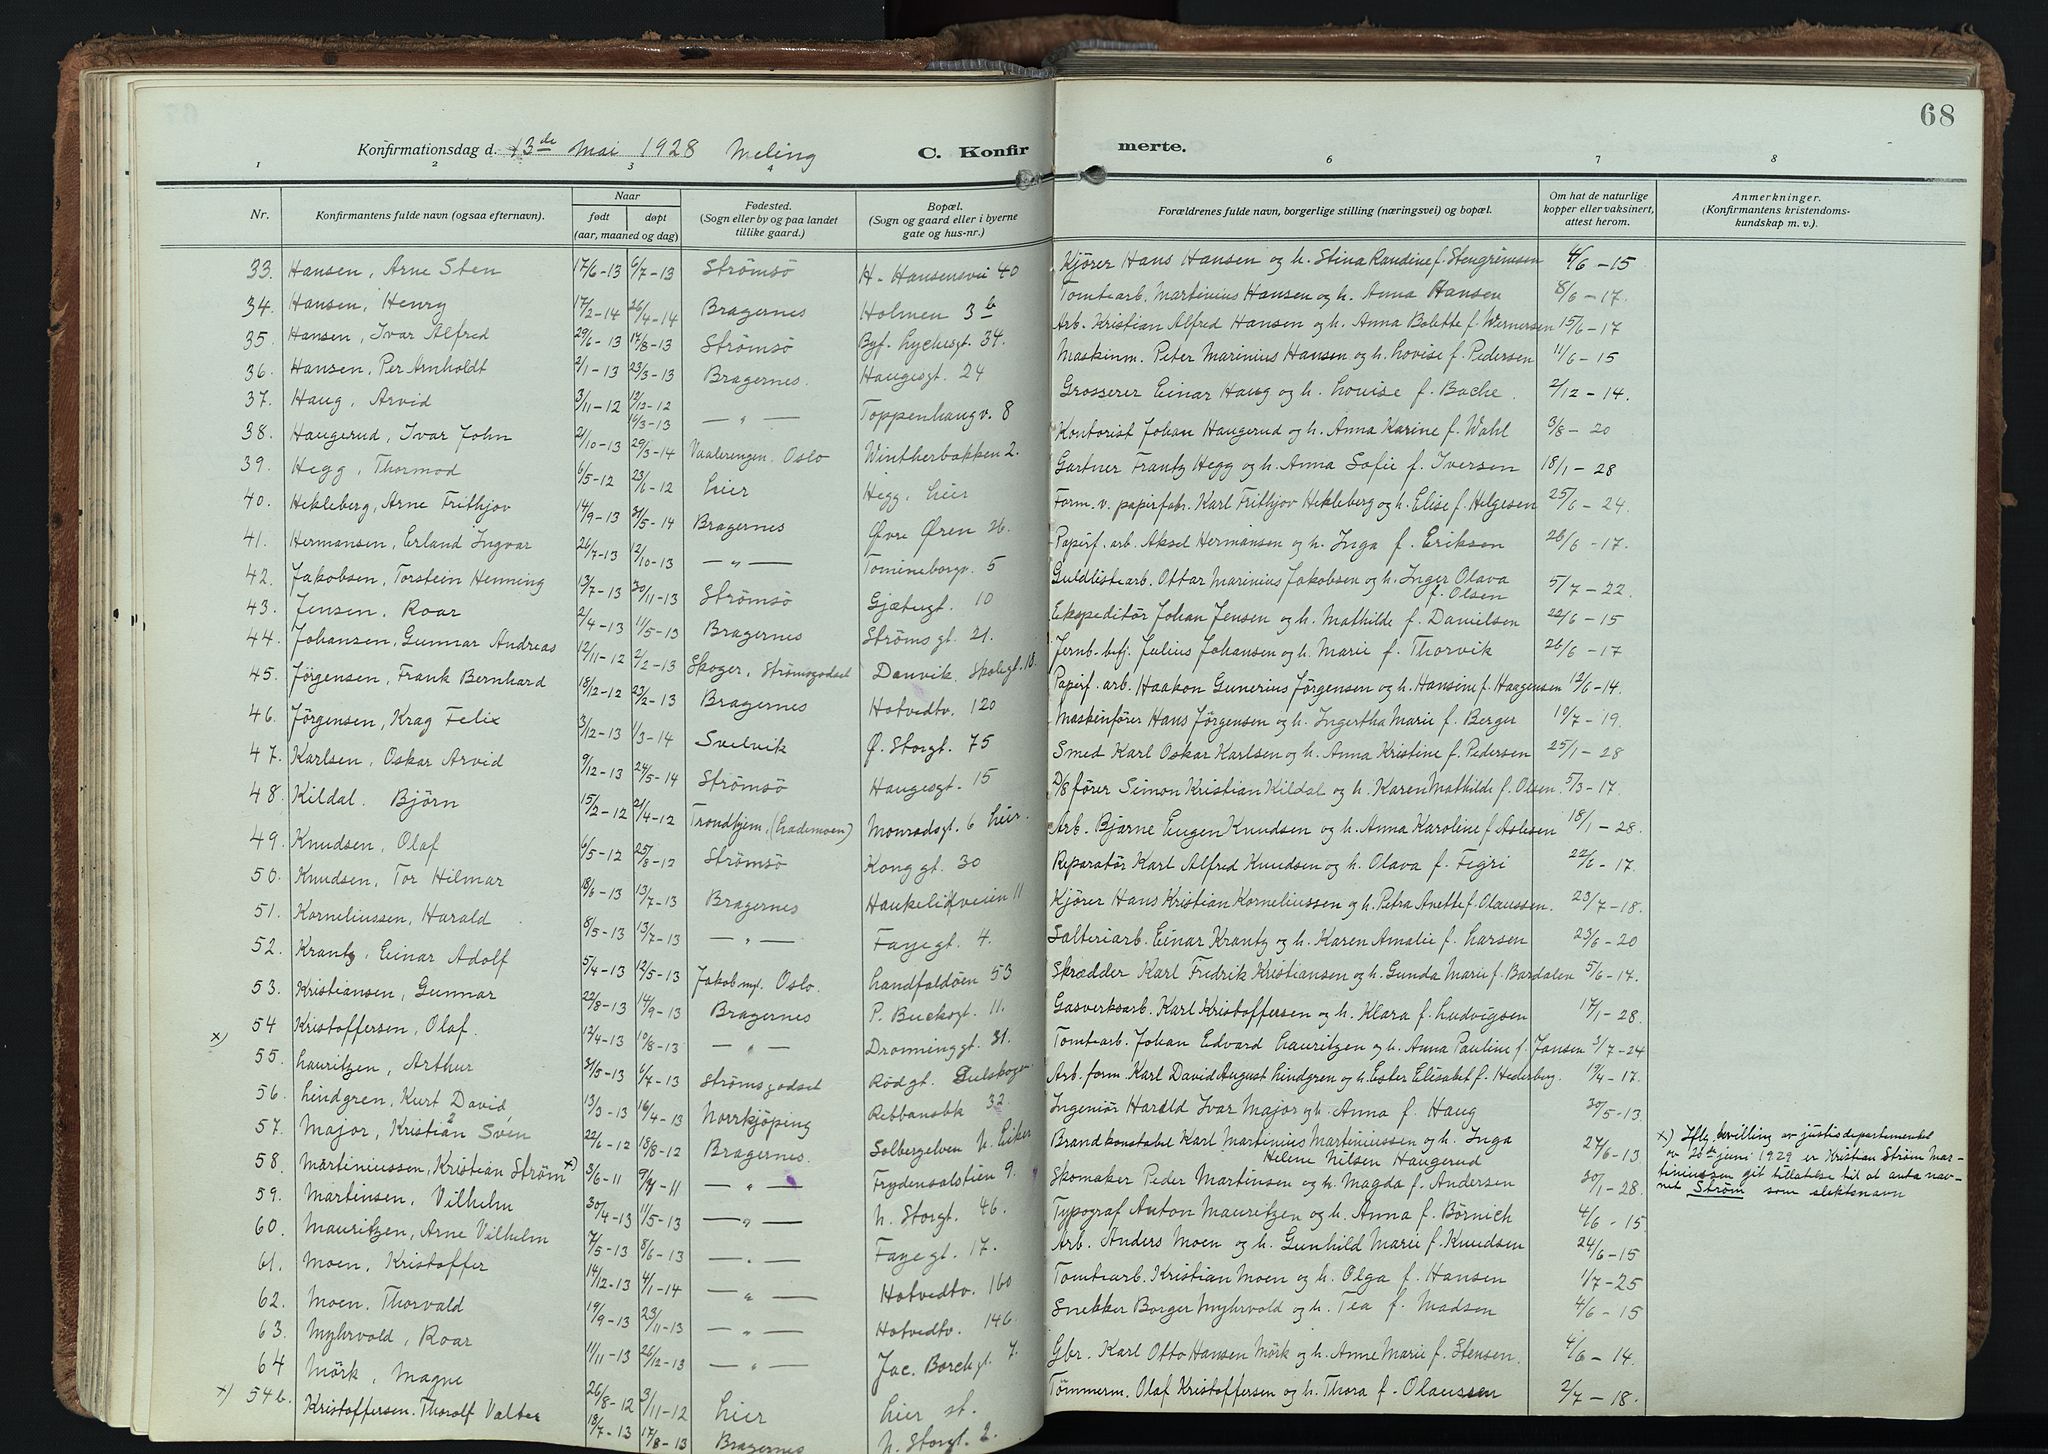 68
Konfirmationsdag d. 13de Mai 1928 Meling C. Konfirmerte.
1 2 3 4 5 6 7 8
Nr. Konfirmantens fulde navn (ogsaa efternavn). Naar født døpt (aar, maaned og dag) Fødested. (Sogn eller by og paa landet tillike gaard.) Bopæl. (Sogn og gaard eller i byerne gate og hus-nr.) Forældrenes fulde navn, borgerlige stilling (næringsvei) og bopæl. Om hat de naturlige kopper eller vaksinert, attest herom. Anmerkninger. (Konfirmantens kristendomskundskap m. v.).
33. Hansen, Arne Sten 17/6-13 6/7-13 Strömsö H. Hansensvei 40 Kjörer Hans Hansen og h. Stina Randine f. Stengrimsen 4/6-15
34. Hansen, Henry 17/2-14 26/4-14 Bragernes Holmen 3b Tomtearb. Martinius Hansen og h. Anna Hansen 8/6-17.
35. Hansen, Ivar Alfred 29/6-13 17/8-13 Strömsö Byf. Lychesgt. 34. Arb. Kristian Alfred Hansen og h. Anna Bolette f. Wernersen 15/6-17
36. Hansen, Per Arnholdt 2/1-13 23/3-13 Bragernes. Haugesgt. 24 Maskinm. Peter Marinius Hansen og h. Lovise f. Pedersen 11/6-15
37. Haug, Arvid 3/11-12 12/12-12 — " — Toppenhaugv. 8 Grosserer Einar Haug og h. Louise f. Bache. 2/12-14.
38. Haugerud, Ivar John 2/10-13 16/3-13 29/3-14 Vaalerengen. Oslo Wintherbakken 2. Kontorist Johan Haugerud og h. Anna Karine f. Wahl 3/8-20
39. Hegg, Thormod 6/5-12 23/6-12 Lier Hegg, Lier Gartner Frantz Hegg og h. Anna Sofie f. Iversen 18/1-28
40. Hekleberg, Arne Frithjov 14/9-13 31/5-14 Bragernes Øvre Øren 26. Form. v. papirfabr. Karl Frithjov Hekleberg og h. Elise f. Helgesen 25/6-24.
41. Hermansen, Erland Ingvar 26/7-13 12/10-13 — " — Tomineborgv. 5 Papirf. arb. Aksel Hermansen og h. Inga f. Eriksen 26/6-17.
42. Jakobsen, Torstein Henning 13/7-13 30/11-13 Strömsö Gjætergt. 10 Guldlistearb. Ottar Marinius Jakobsen og h. Inger Olava f. Olsen 5/7-22.
43. Jensen, Roar 2/4-13 11/5-13 Bragernes Ströms gt. 21. Ekspeditör Johan Jensen og h. Mathilde f. Danielsen 22/6-15
44. Johansen, Gunnar Andreas 12/11-12 2/2-13 Skoger, Strömsgodset Danvik. Skolegt. 18. Jernb. betj. Julius Johansen og h. Marie f. Thorvik 26/6-17
45. Jörgensen, Frank Bernhard 18/12-12 23/2-13 Bragernes Hotvedtv. 120 Papirf. arb. Haakon Gunerius Jörgensen og h. Hansine f. Haagensen 12/6-14.
46. Jörgensen, Krag Felix 3/12-13 1/3-14 Svelvik Ø. Storgt. 75 Maskinfører Hans Jörgensen og h. Ingertha Marie f. Berger 10/7-19.
47. Karlsen, Oskar Arvid 9/12-13 24/5-14 Strömsö Haugesgt. 15 Smed Karl Oskar Karlsen og h. Anna Kristine f. Pedersen 25/1-28
48. Kildal. Björn 15/2-12 21/4-12 Trondhjem, (Lademoen) Monradsgt. 6 Lier. D/S fører Simon Kristian Kildal og h. Karen Mathilde f. Olsen. 5/3-17.
49. Knudsen, Olaf 6/5-12 25/8-12 Strömsö Kong gt. 30 Arb. Bjarne Eugen Knudsen og h. Anna Karoline f. Aslesen 18/1-28.
50. Knudsen, Tor Hilmar 18/6-13 13/7-13 Bragernes Haukelidveien 11 Reparatör Karl Alfred Knudsen og h. Olava f. Fegri 22/6-17.
51. Korneliussen, Harald 8/5-13 13/7-13 — " — Fayegt. 4. Kjörer Hans Kristian Korneliussen og h. Petra Anette f. Olaussen. 23/7-18.
52. Krantz, Einar Adolf 5/4-13 12/5-13 Jakob mgt. Oslo. Landfaldöen 53 Salteriarb. Einar Krantz og h. Karen Amalie f. Larsen 23/6-20
53. Kristiansen, Gunnar 22/8-13 14/9-13 Bragernes P. Buchsgt. 11. Skrædder Karl Fredrik Kristiansen og h. Gunda Marie f. Bardalen 5/6-14.
x) 54 Kristoffersen, Olaf. 13/4-13 10/8-13 — " — Dronninggt. 31. Gasverksarb. Karl Kristoffersen og h. Klara f. Ludvigsen 17/1-28.
55. Lauritzen, Arthur 31/5-13 6/7-13 Strömsgodset Rødgt. Gulskogen Tomtearb. Johan Edvard Lauritzen og h. Anna Pauline f. Jansen 3/7-24
56. Lindgren, Kurt David, 13/3-13 16/4-13 Norrkjöping Rebbansbk 32. Arb. form. Karl David August Lindgren og h. Ester Elisabet f. Hederberg. 19/4-17.
57. Major, Kristian Sven 22/6-12 18/8-12 Bragernes. Solbergelven N. Eiker Ingeniör Harald Ivar Major og h. Anna f. Haug 30/5-13
58. Martiniussen, Kristian Ström x) 3/6-11 9/7-11 — " — Frydensalstien 9. Brandkonstabel Karl Martinius Martiniussen og h. Inga Heline Nilsen Haugerud 27/6-13 x) Iflg bevilling av justisdepartementet av 20de juni 1929 er Kristian Ström Martiniussen git tillatelse til at anta navnet Ström som slektsnavn
59. Martinsen, Vilhelm 30/4-13 11/5-13 — " — N. Storgt. 46. Skomaker Peder Martinsen og h. Magda f. Andersen 30/1-28.
60. Mauritzen, Arne Vilhelm 7/5-13 8/6-13 — " — Fayegt. 17. Typograf Anton Mauritzen og h. Anna f. Börnich 4/6-15.
61. Moen, Kristoffer 14/12-13 4/1-14 — " — Hotvedtv. 160 Arb. Anders Moen og h. Gunhild Marie f. Knudsen 24/6-15
62. Moen. Thorvald 19/9-13 23/11-13 — " — Hotvedtv. 146. Tomtearb. Kristian Moen og h. Olga f. Hansen 1/7-25
63. Myhrvold, Roar 11/11-13 26/12-13 — " — Jac. Borchgt. 7. Snekker Borger Myhrvold og h. Tea f. Madsen 4/6-15
64 Mörk, Magne 26/8-12 3/11-12 Lier Lier st. Gbr. Karl Otto Hansen Mörk og h. Anne Marie f. Stensen. 4/6-14.
x) 54 b. Kristoffersen. Thorolf Valter 18/7-13 17/8-13 Bragernes N. Storgt. 2. Tömmerm. Olaf Kristoffersen og h. Thora f. Olaussen 2/7-18.